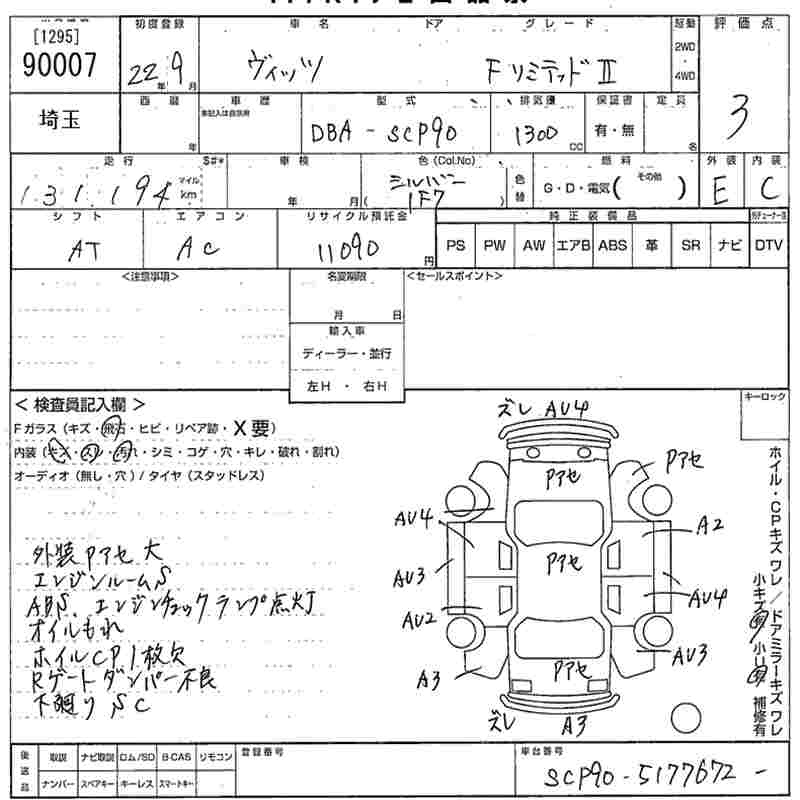 [1295]
90007
初度登録 車名 ドア グレード 駆動 評価点
22年9月 ヴィッツ FリミテッドⅡ 2WD・4WD 3
埼玉
西暦 車歴 型式 排気量 保証書 定員
年 未記入は自家用 DBA-SCP90 1300cc 有・無 名
走行 $#* 車検 色(Col.No) 燃料 外装 内装
131,194 マイル km 年 月 シルバー 1F7 色替 G・D・電気( その他 ) E C
シフト エアコン リサイクル預託金 純正装備品
AT AC 11090円 PS PW AW エアB ABS 革 SR ナビ DTV
<注意事項> 名変期限 <セールスポイント>
月 日
輸入車
ディーラー・並行
左H ・ 右H
<検査員記入欄>
Fガラス(キズ・飛石・ヒビ・リペア跡・X要)
内装(キズ・スレ・汚れ・シミ・コゲ・穴・キレ・破れ・割れ)
オーディオ(無し・穴)/タイヤ(スタッドレス)
外装Pアセ大
エンジンルームS
ABS、エンジンチェックランプ点灯
オイルもれ
ホイルCP1枚欠
Rゲートダンパー不良
下廻りSC
ズレ AU4
Pアセ
Pアセ
AU4
A2
AU3
Pアセ
AU2
AU4
A3
Pアセ
AU3
ズレ A3
キーロック
ホイル・CPキズワレ/ドアミラーキズワレ
小キズ 小U 補修有
後送品 取説 ナビ取説 ロム/SD B-CAS リモコン 登録番号 車台番号
ナンバー スペアキー キーレス スマートキー SCP90-5177672-